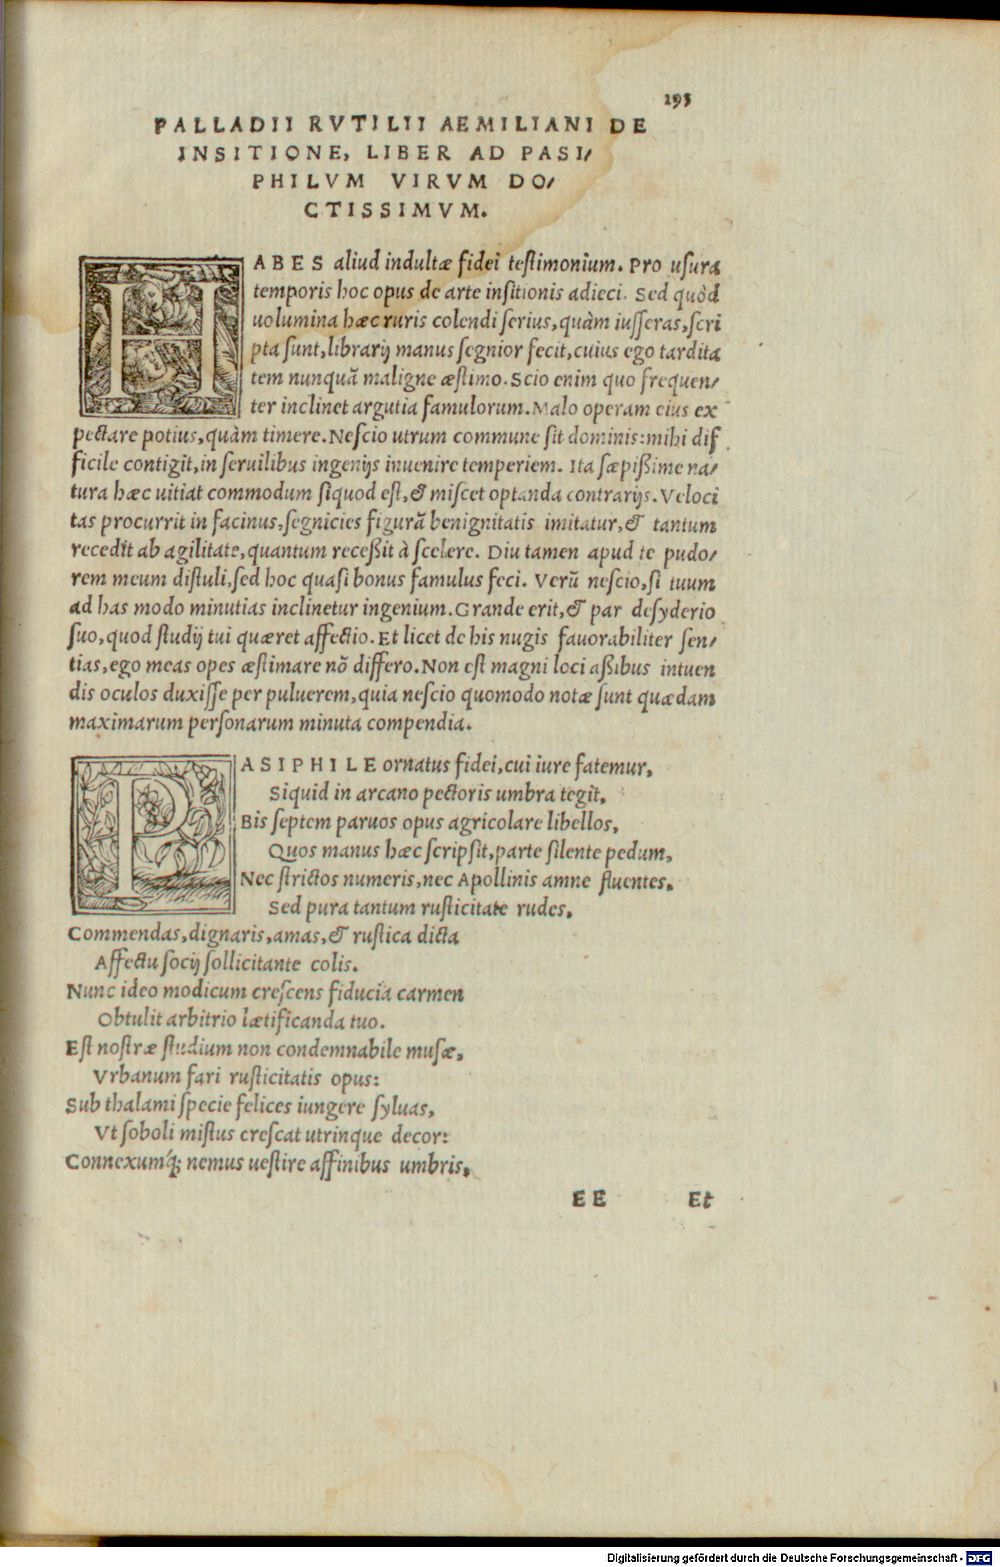 193
PALLADII RVTILII AEMILIANI DE
INSITIONE, LIBER AD PASI/
PHILVM VIRVM DO/
CTISSIMVM.
HABES aliud indultæ fidei teſtimonium. Pro uſura
temporis hoc opus de arte inſitionis adieci. Sed quòd
uolumina hæc ruris colendi ſerius, quàm iuſſeras, ſcri
pta ſunt, librarij manus ſegnior fecit, cuius ego tardita
tem nunquā maligne æſtimo. Scio enim quo frequen/
ter inclinet argutia famulorum. Malo operam eius ex
pectare potius, quàm timere. Neſcio utrum commune ſit dominis: mihi dif
ficile contigit, in ſeruilibus ingenijs inuenire temperiem. Ita ſæpißime na/
tura hæc uitiat commodum ſiquod eſt, & miſcet optanda contrarijs. Veloci
tas procurrit in facinus, ſegnicies figurā benignitatis imitatur, & tantum
recedit ab agilitate, quantum receßit à ſcelere. Diu tamen apud te pudo/
rem meum diſtuli, ſed hoc quaſi bonus famulus feci. Verū neſcio, ſi tuum
ad has modo minutias inclinetur ingenium. Grande erit, & par deſyderio
ſuo, quod ſtudij tui quæret affectio. Et licet de his nugis fauorabiliter ſen/
tias, ego meas opes æſtimare nō differo. Non eſt magni loci aßibus intuen
dis oculos duxiſſe per puluerem, quia neſcio quomodo notæ ſunt quædam
maximarum perſonarum minuta compendia.
PASIPHILE ornatus fidei, cui iure fatemur,
Siquid in arcano pectoris umbra tegit,
Bis ſeptem paruos opus agricolare libellos,
Quos manus hæc ſcripſit, parte ſilente pedum,
Nec ſtrictos numeris, nec Apollinis amne fluentes,
Sed pura tantum ruſticitate rudes,
Commendas, dignaris, amas, & ruſtica dicta
Affectu ſocij ſollicitante colis.
Nunc ideo modicum creſcens fiducia carmen
Obtulit arbitrio lætificanda tuo.
Eſt noſtræ ſtudium non condemnabile muſæ,
Vrbanum fari ruſticitatis opus:
Sub thalami ſpecie felices iungere ſyluas,
Vt ſoboli miſtus creſcat utrinque decor:
Connexumq́; nemus ueſtire affinibus umbris,
EE Et
Digitalisierung gefördert durch die Deutsche Forschungsgemeinschaft - DFG